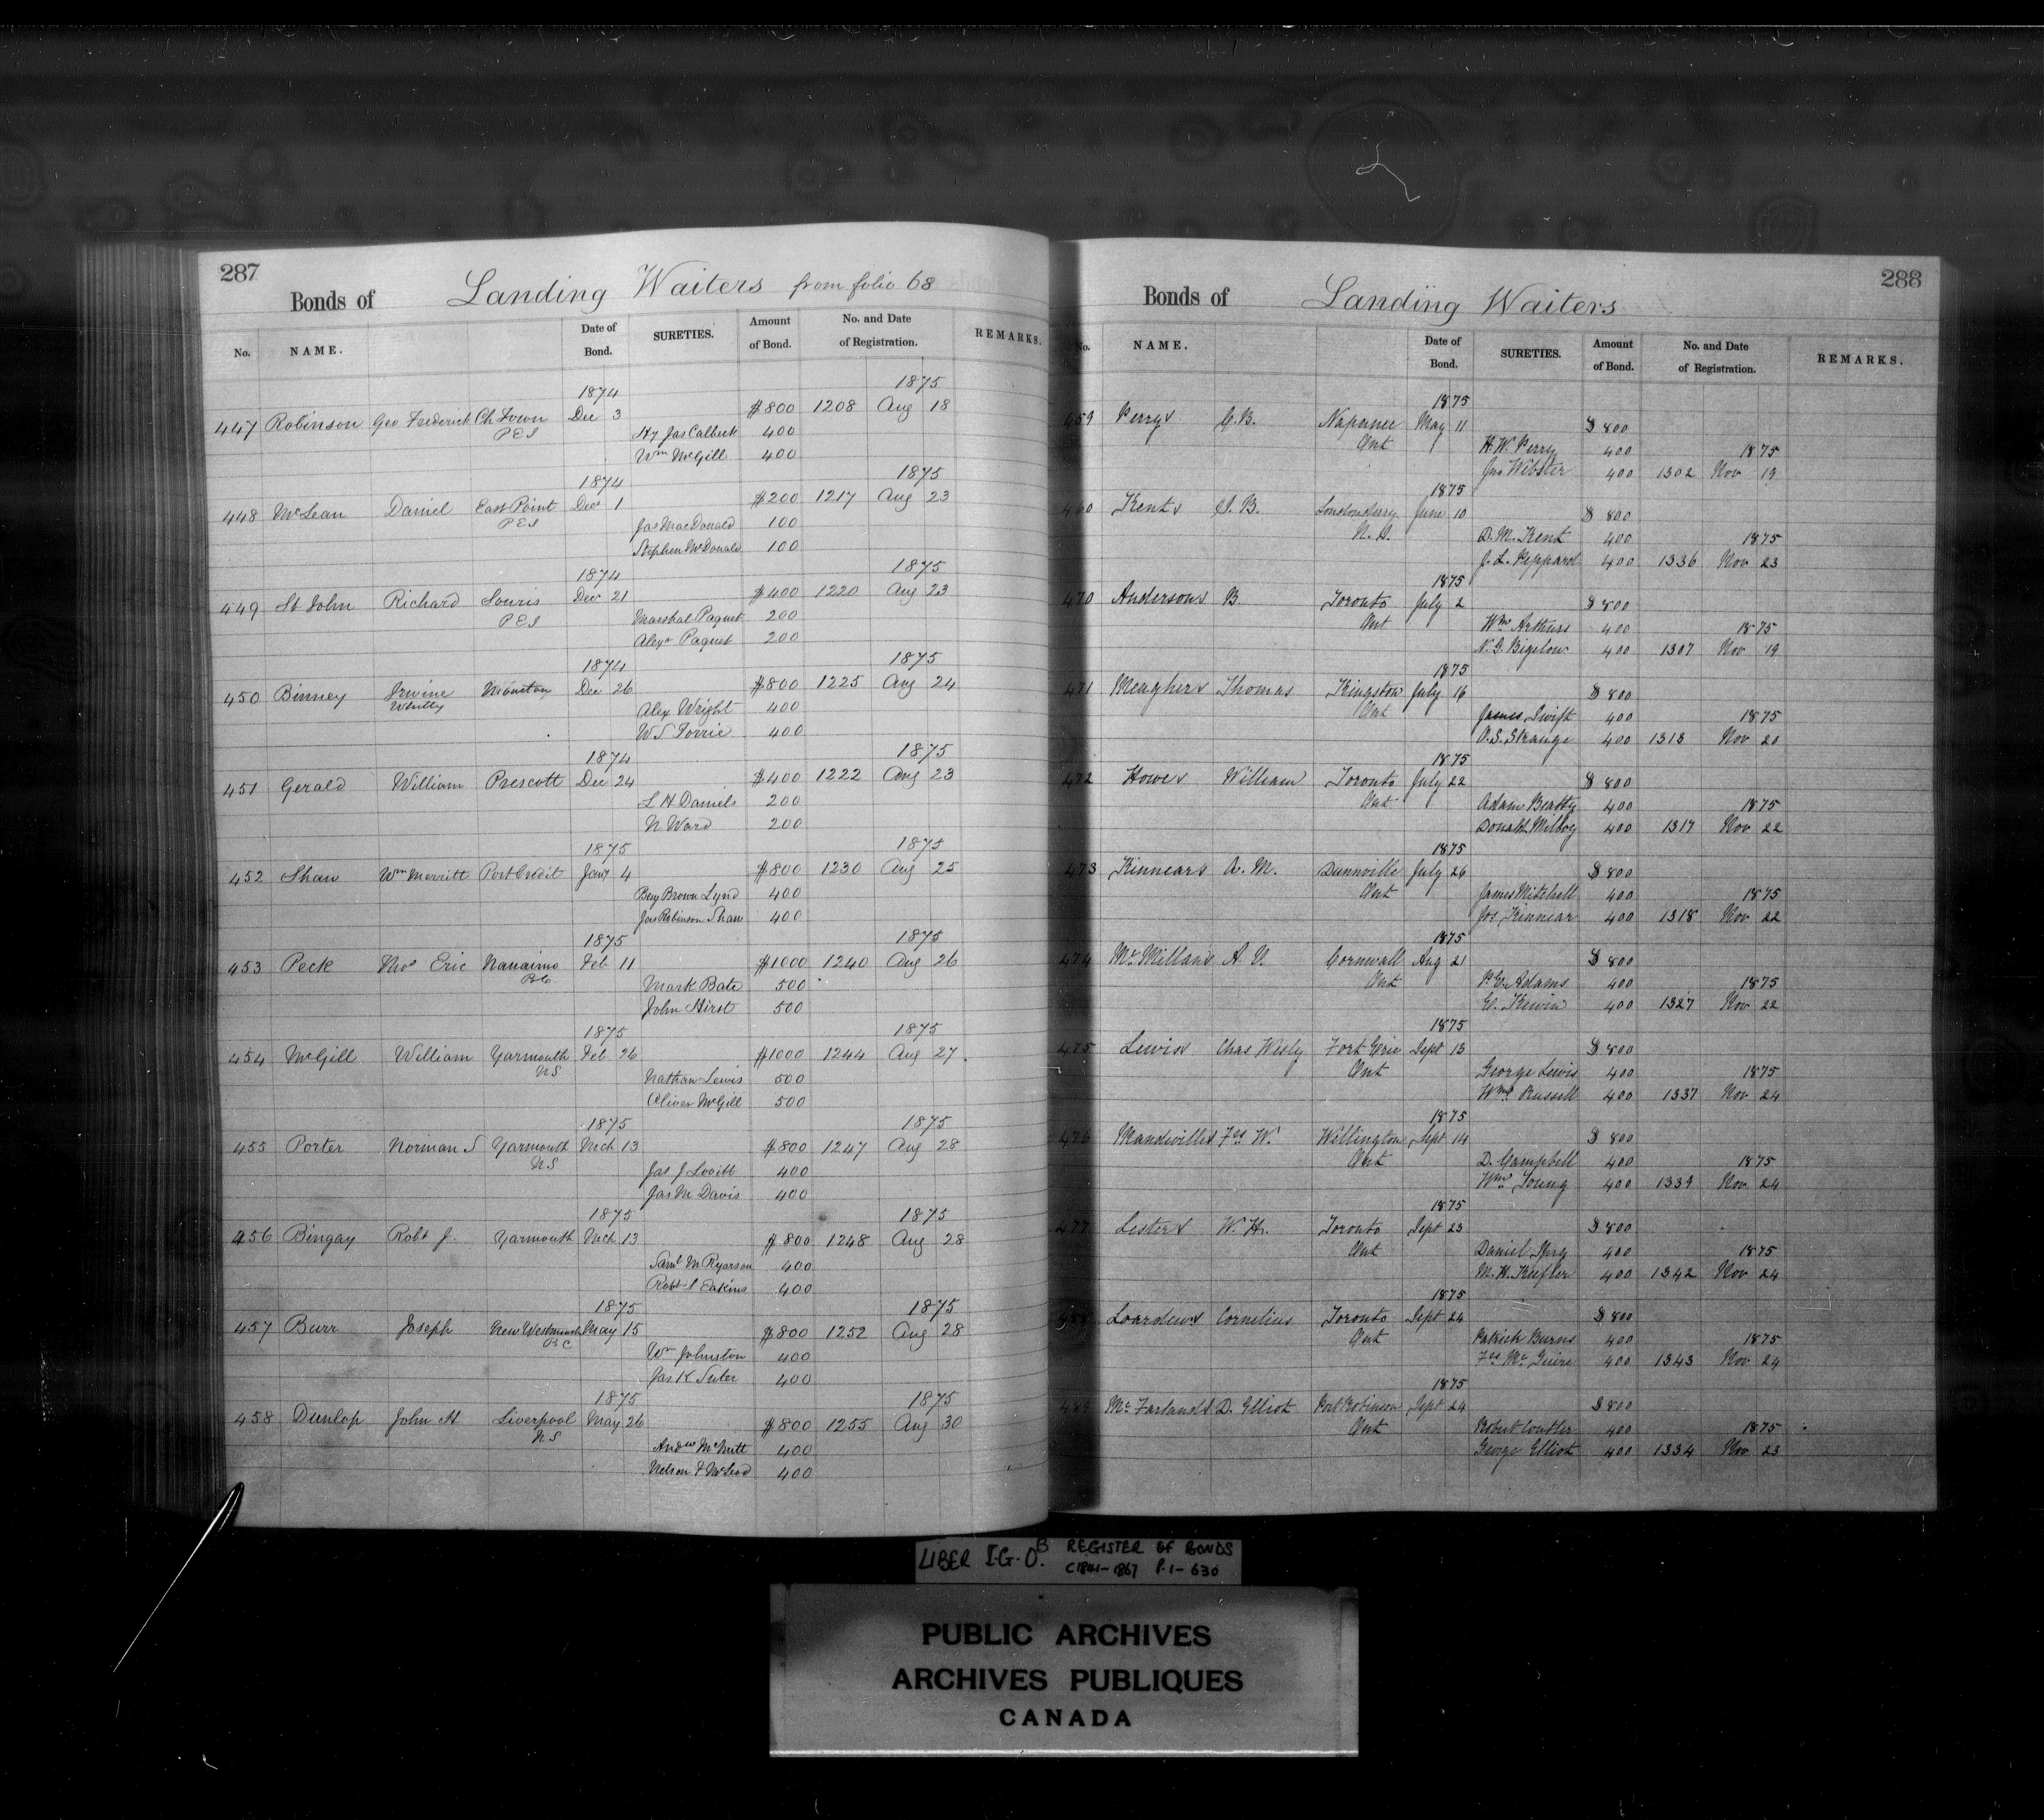 287
Bonds of Landing Waiters from folio 68
No. NAME. Date of Bond. SURETIES. Amount of Bond. No. and Date of Registration. REMARKS.
1874 1875
447 Robinson Geo Frederick Ch Town Dec 3 $800 1208 Aug 18
PEI Hy Jas Calbeck 400
Wm McGill 400
1874 1875
448 McLean Daniel East Point Decr 1 $200 1217 Aug 23
PEI Jas MacDonald 100
Stephen McDonald 100
1874 1875
449 St John Richard Souris Decr 21 $400 1220 Aug 23
PEI Marshal Paquet 200
Alexr Paquet 200
1874 1875
450 Binney Irwine Moncton Dec 26 $800 1225 Aug 24
Whitty Alex Wright 400
W S Torrie 400
1874 1875
451 Gerald William Prescott Dec 24 $400 1222 Aug 23
L H Daniels 200
N Ward 200
1875 1875
452 Shaw Wm Merritt Port Credit Jany 4 $800 1230 Aug 25
Benj Brown Lynd 400
Jas Robinson Shaw 400
1875 1875
453 Peck Eric Nanaimo Feb 11 $1000 1240 Aug 26
BC Mark Bate 500
John Hirst 500
1875 1875
454 McGill William Yarmouth Feb 26 $1000 1244 Aug 27
NS Nathan Lewis 500
Oliver McGill 500
1875 1875
455 Porter Norman S Yarmouth Mch 13 $800 1247 Aug 28
NS Jas J Lovitt 400
Jas M Davis 400
1875 1875
456 Bingay Robt J. Yarmouth Mch 13 $800 1248 Aug 28
Saml M Ryarson 400
Robt S Eakins 400
1875 1875
457 Burr Joseph New Westminster May 15 $800 1252 Aug 28
BC Wm Johnston 400
Jas K Suter 400
1875 1875
458 Dunlop John H Liverpool May 26 $800 1255 Aug 30
NS Andw McNutt 400
Nelson F McLeod 400
288
Bonds of Landing Waiters
No. NAME. Date of Bond. SURETIES. Amount of Bond. No. and Date of Registration. REMARKS.
1875
459 Perry C.B. Napanee May 11 $800
Ont H.W. Perry 400 1875
Jno Webster 400 1302 Nov 19
1875
460 Kent J.B. Londonderry June 10 $800
N.S. D.M. Kent 400 1875
J.L. Peppard 400 1336 Nov 23
1875
470 Anderson B. Toronto July 2 $800
Ont Wm Arthurs 400 1875
N.G. Bigelow 400 1307 Nov 19
1875
471 Meagher Thomas Kingston July 16 $800
Ont James Swift 400 1875
O.S. Strange 400 1313 Nov 20
1875
472 Howe William Toronto July 22 $800
Ont Adam Beatty 400 1875
Donald Milloy 400 1317 Nov 22
1875
473 Kinnear A.M. Dunnville July 26 $800
Ont James Mitchell 400 1875
Jos Kinnear 400 1318 Nov 22
1875
474 McMillan Cornwall Aug 21 $800
Ont Adams 400 1875
400 1327 Nov 22
1875
475 Lewis Chas Wesly Fort Erie Sept 13 $800
Ont George Lewis 400 1875
Wm Russell 400 1337 Nov 24
1875
476 Mandeville Fas W. Wellington Sept 14 $800
Ont D. Campbell 400 1875
Wm Young 400 1339 Nov 24
1875
477 Lester W.H. Toronto Sept 23 $800
Ont Daniel Spry 400 1875
M.H. Keefler 400 1342 Nov 24
1875
Cornelius Toronto Sept 24 $800
Ont Patrick Burns 400 1875
Fas McGuire 400 1343 Nov 24
1875
McFarland D. Elliot Port Robinson Sept 24 $800
Ont Robert Coulter 400 1875
George Elliot 400 1334 Nov 23
LIBER I.G.O.B REGISTER OF BONDS
C1841-1867 P.1-630
PUBLIC ARCHIVES
ARCHIVES PUBLIQUES
CANADA